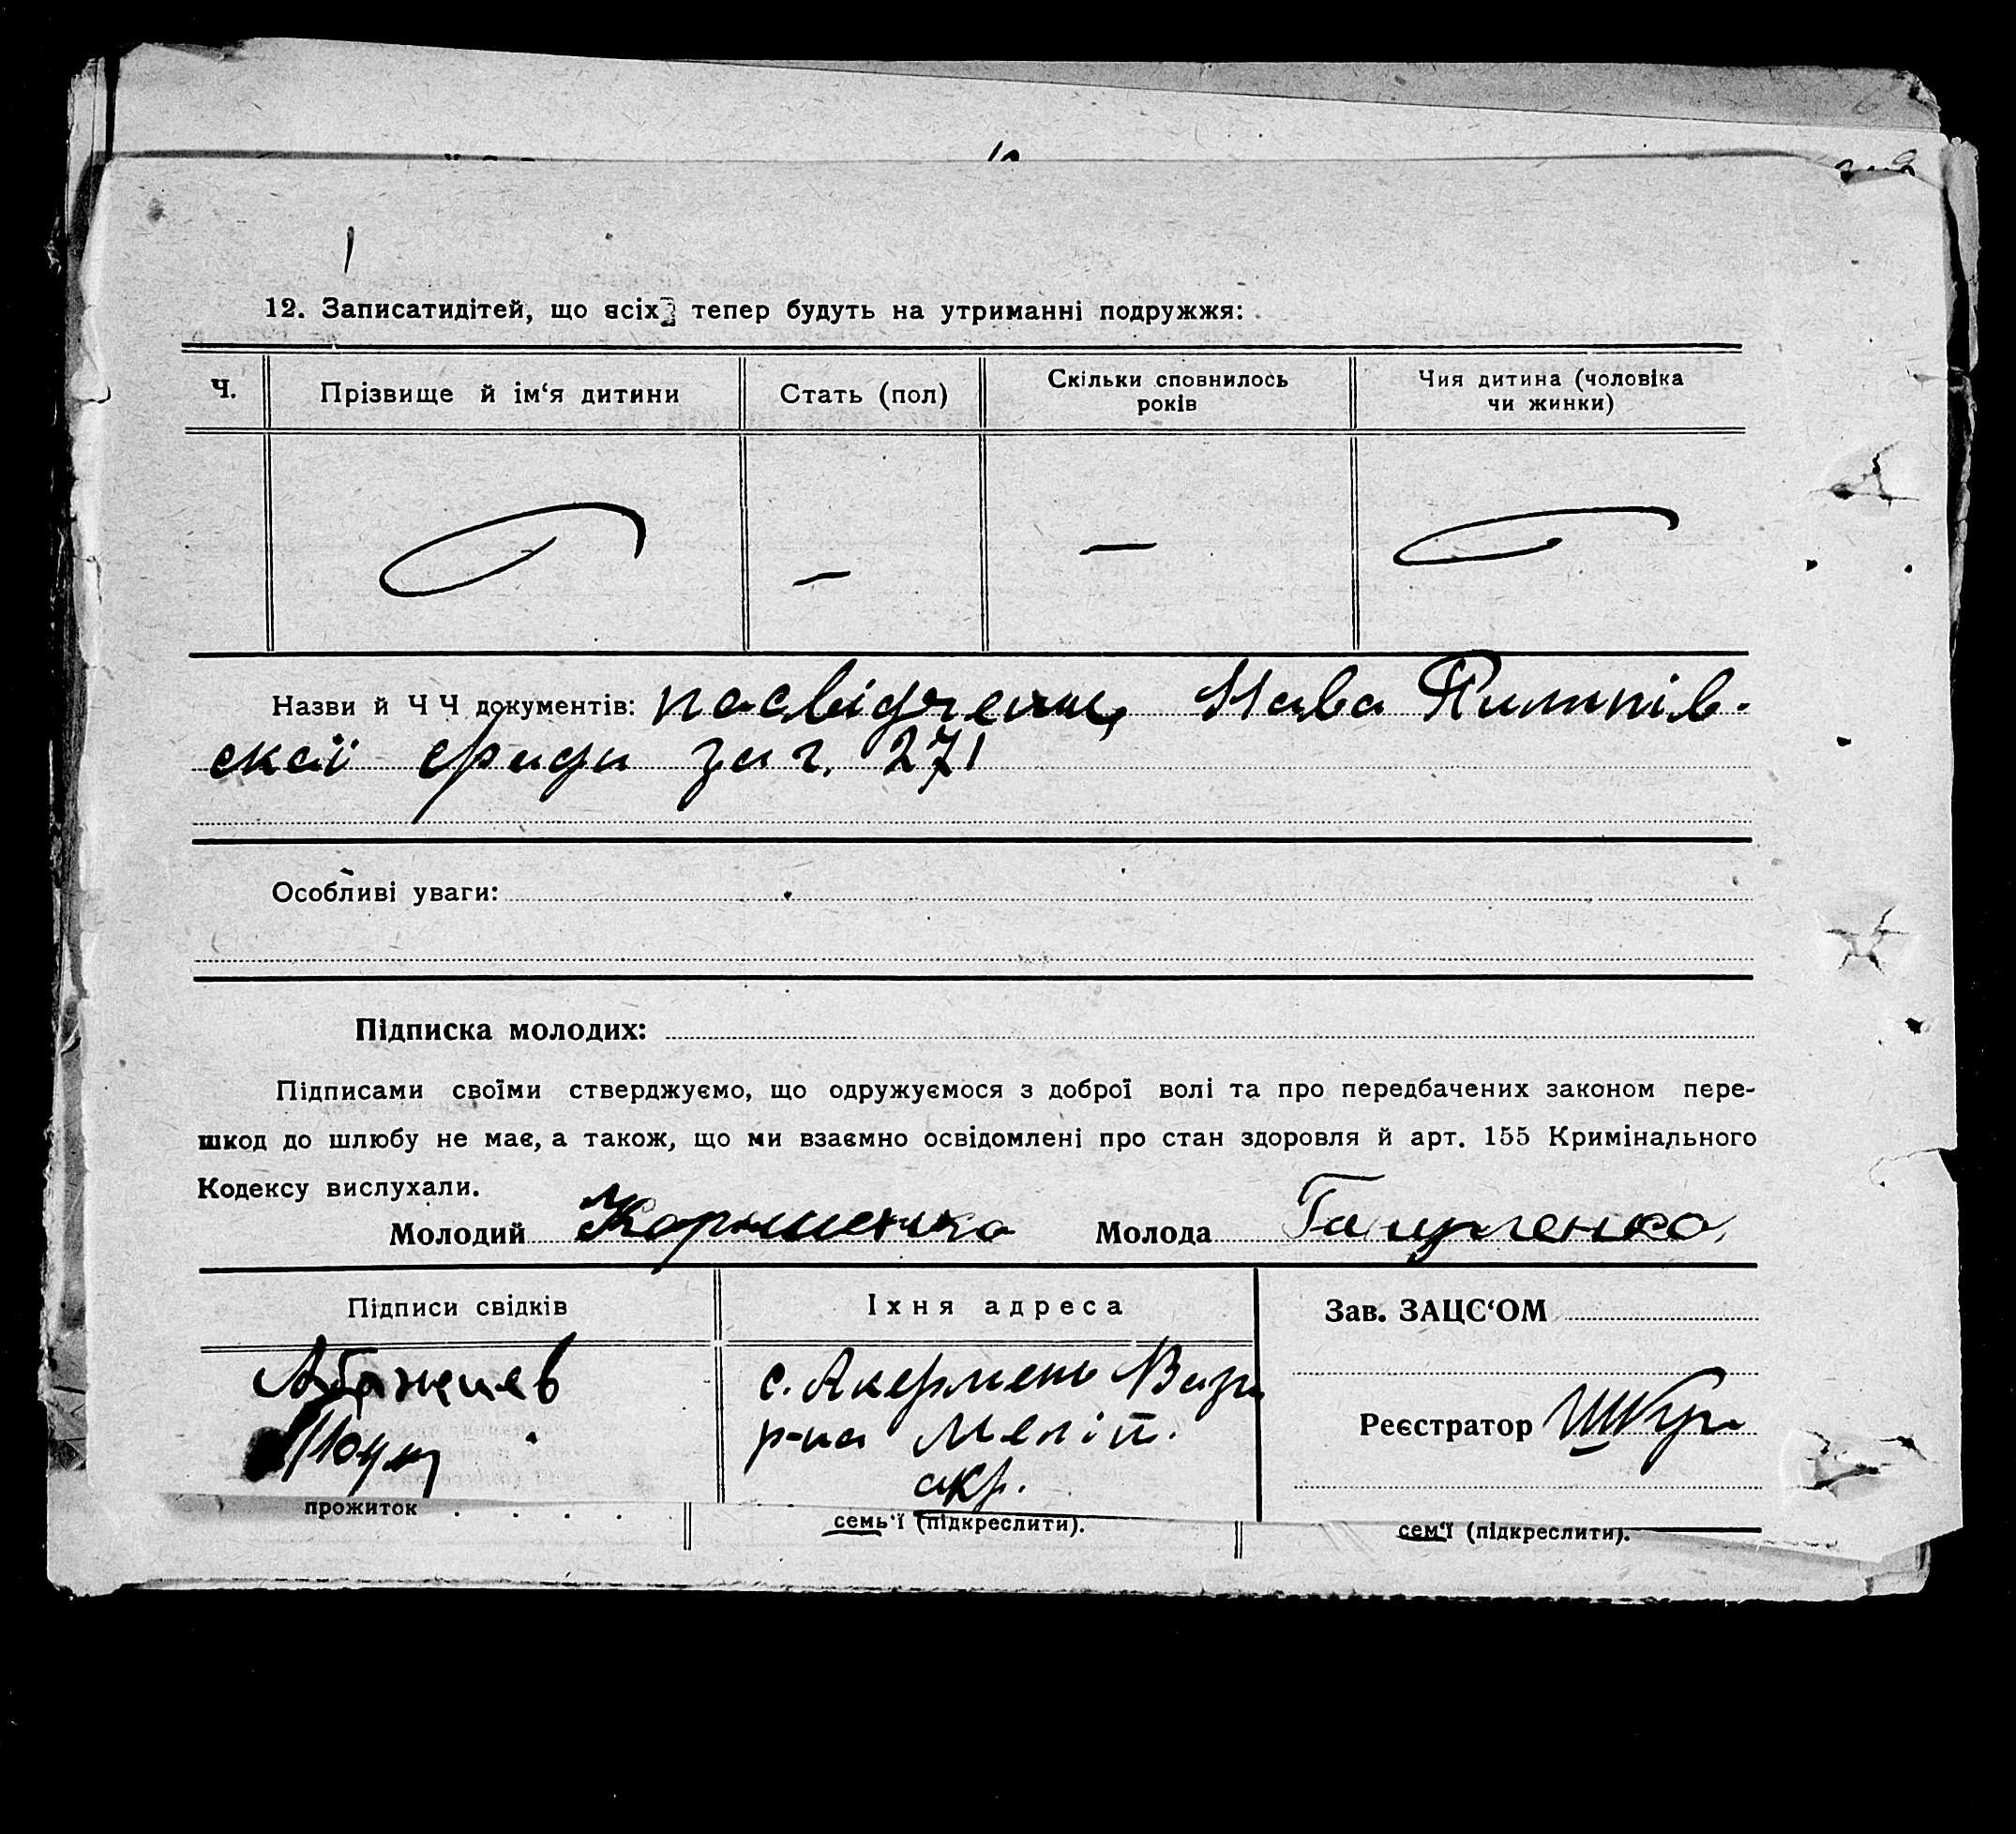 12. Записатидітей, що всіх тепер будуть на утриманні подружжя:
Ч.
Прізвище й ім‘я дитини
Стать (пол)
Скільки сповнилось
років
Чия дитина (чоловіка
чи жинки)
—
—
Назви й Ч Ч документів: посвідчення Ново Пилипів-
ської сради за ч. 271
Особливі уваги:
Підписка молодих:
Підписами своїми стверджуємо, що одружуємося з доброї волі та про передбачених законом пере-
шкод до шлюбу не має, а також, що ми взаємно освідомлені про стан здоровля й арт. 155 Кримінального
Кодексу вислухали.
Молодий Коршенко Молода
Підписи свідків
Їхня адреса
Зав. ЗАЦС‘ОМ
с. Акермень
р-на Меліт.
окр.
Реєстратор
прожиток . . . .
семь‘ї (підкреслити).
сем‘ї (підкреслити).